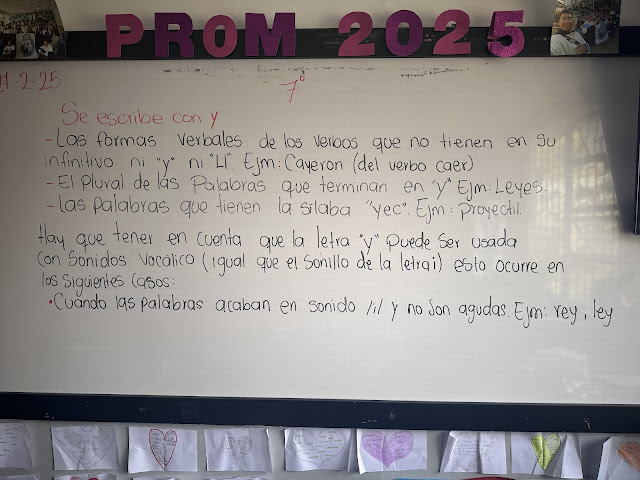 PROM 2025
17-2-25
7°
Se escribe con y
- Las formas verbales de los verbos que no tienen en su
infinitivo ni "y" ni "Ll". Ejm: Cayeron (del verbo caer)
- El plural de las Palabras que terminan en "y" Ejm: Leyes.
- Las palabras que tienen la silaba "yec". Ejm: Proyectil.
Hay que tener en cuenta que la letra "y" puede ser usada
con sonidos vocálico (igual que el sonillo de la letra i) esto ocurre en
los siguientes casos:
• Cuando las palabras acaban en sonido /i/ y no son agudas. Ejm: rey, ley